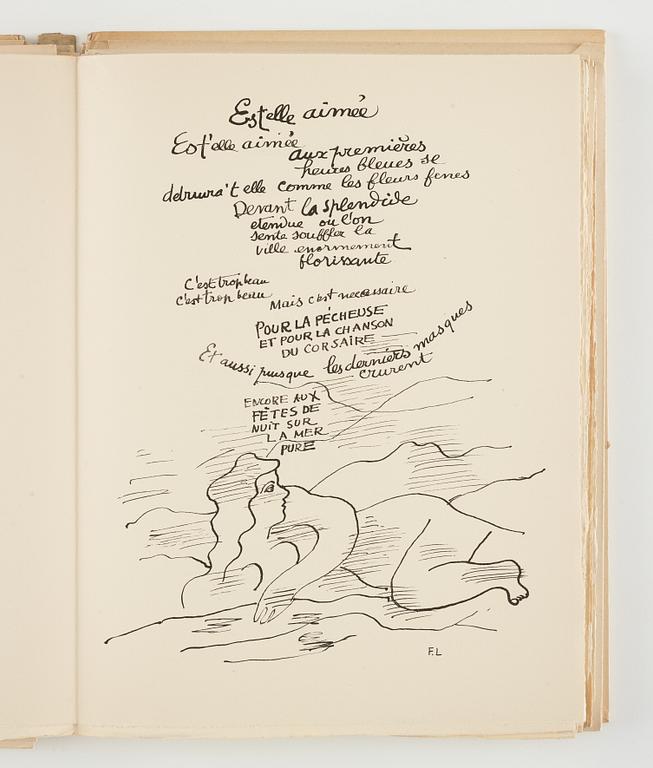 Estelle aimée
Est'elle aimée
aux premières
heures bleues se
detruira't elle comme les fleurs feues
Devant la splendide
etendue où l'on
sente souffler la
ville enormement
florissante
C'est trop beau
c'est trop beau
Mais c'est necessaire
POUR LA PÉCHEUSE
ET POUR LA CHANSON
DU CORSAIRE
Et aussi puisque les derniers masques
crurent
ENCORE AUX
FÊTES DE
NUIT SUR
LA MER
PURE
F.L